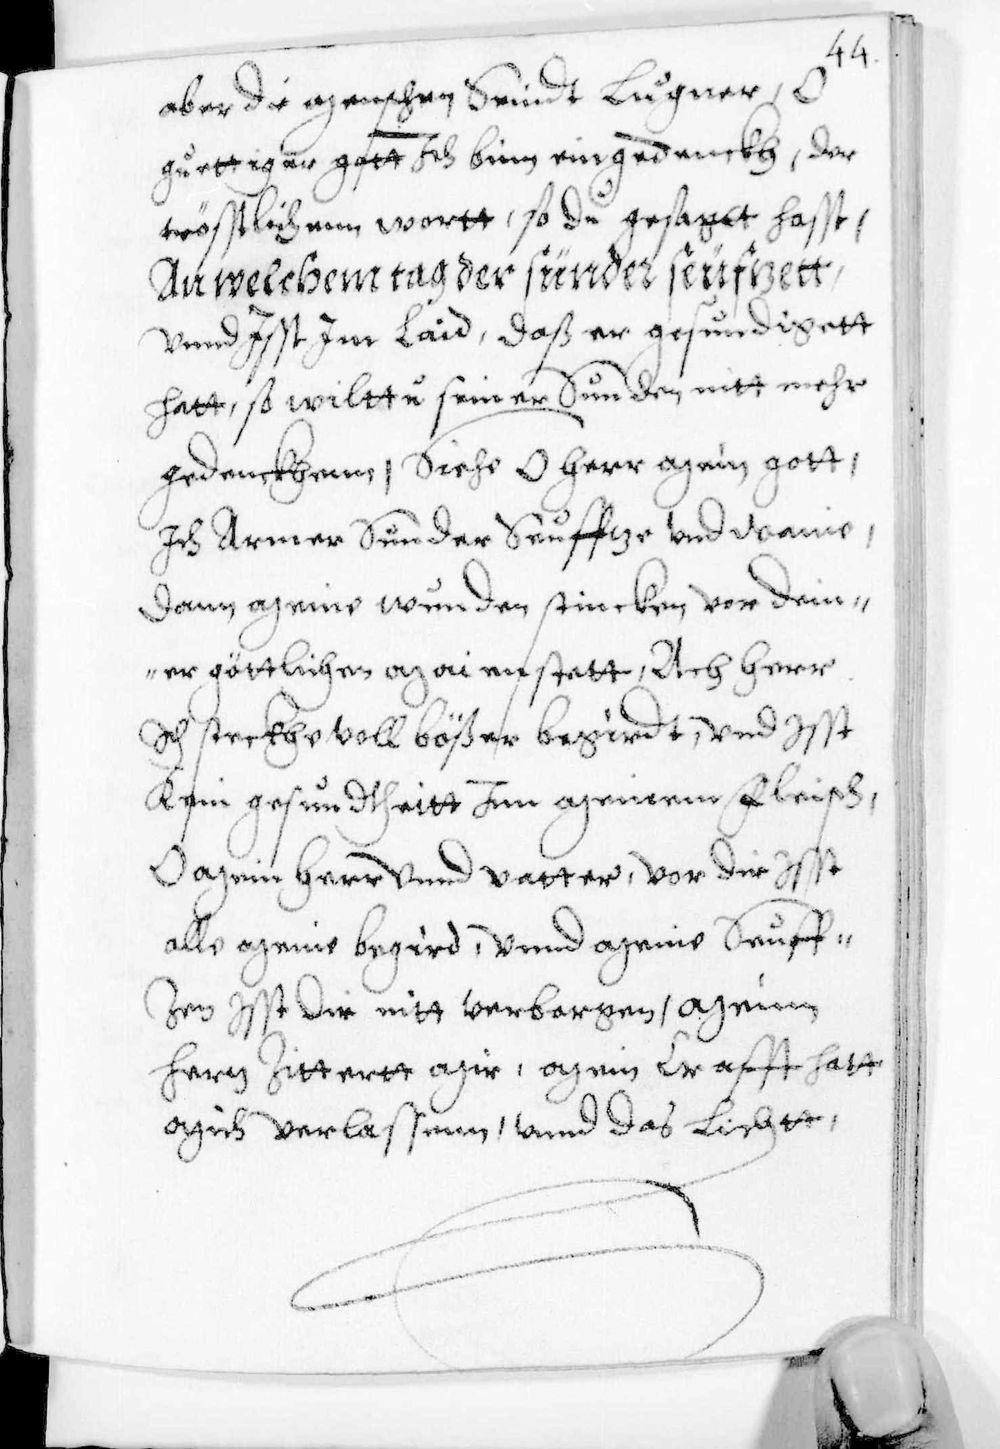 44.
aber die menschen Seindt Lugner, O
guettiger gott Ich binn eingedenckh, der
trösstlichenn wortt, so du gesagtt hasst,
An welchem tag der sünder seüfftzett,
vnnd Isst Im Laid, daß er gesundigett
hatt, so wilttu seiner Sunden nitt mehr
gedenckhenn, Siehe O herr mein gott,
Ich Armer Sunder Seufftze vnd waine,
dann meine wunden stincken vor dein"
"er göttlichen maienstett, Ach herr
Ich steckhe voll bößer begirdt, vnd Isst
Kein gesundtheitt Inn meinem fleisch,
O mein herr vnnd vatter, vor dir Isst
alle meine begird, vnnd meine Seuff"
Zen Isst dir nitt verborgen, meinn
hertz Zittertt mir, mein Crafft hatt
mich verlassenn, vnnd das Liechtt,